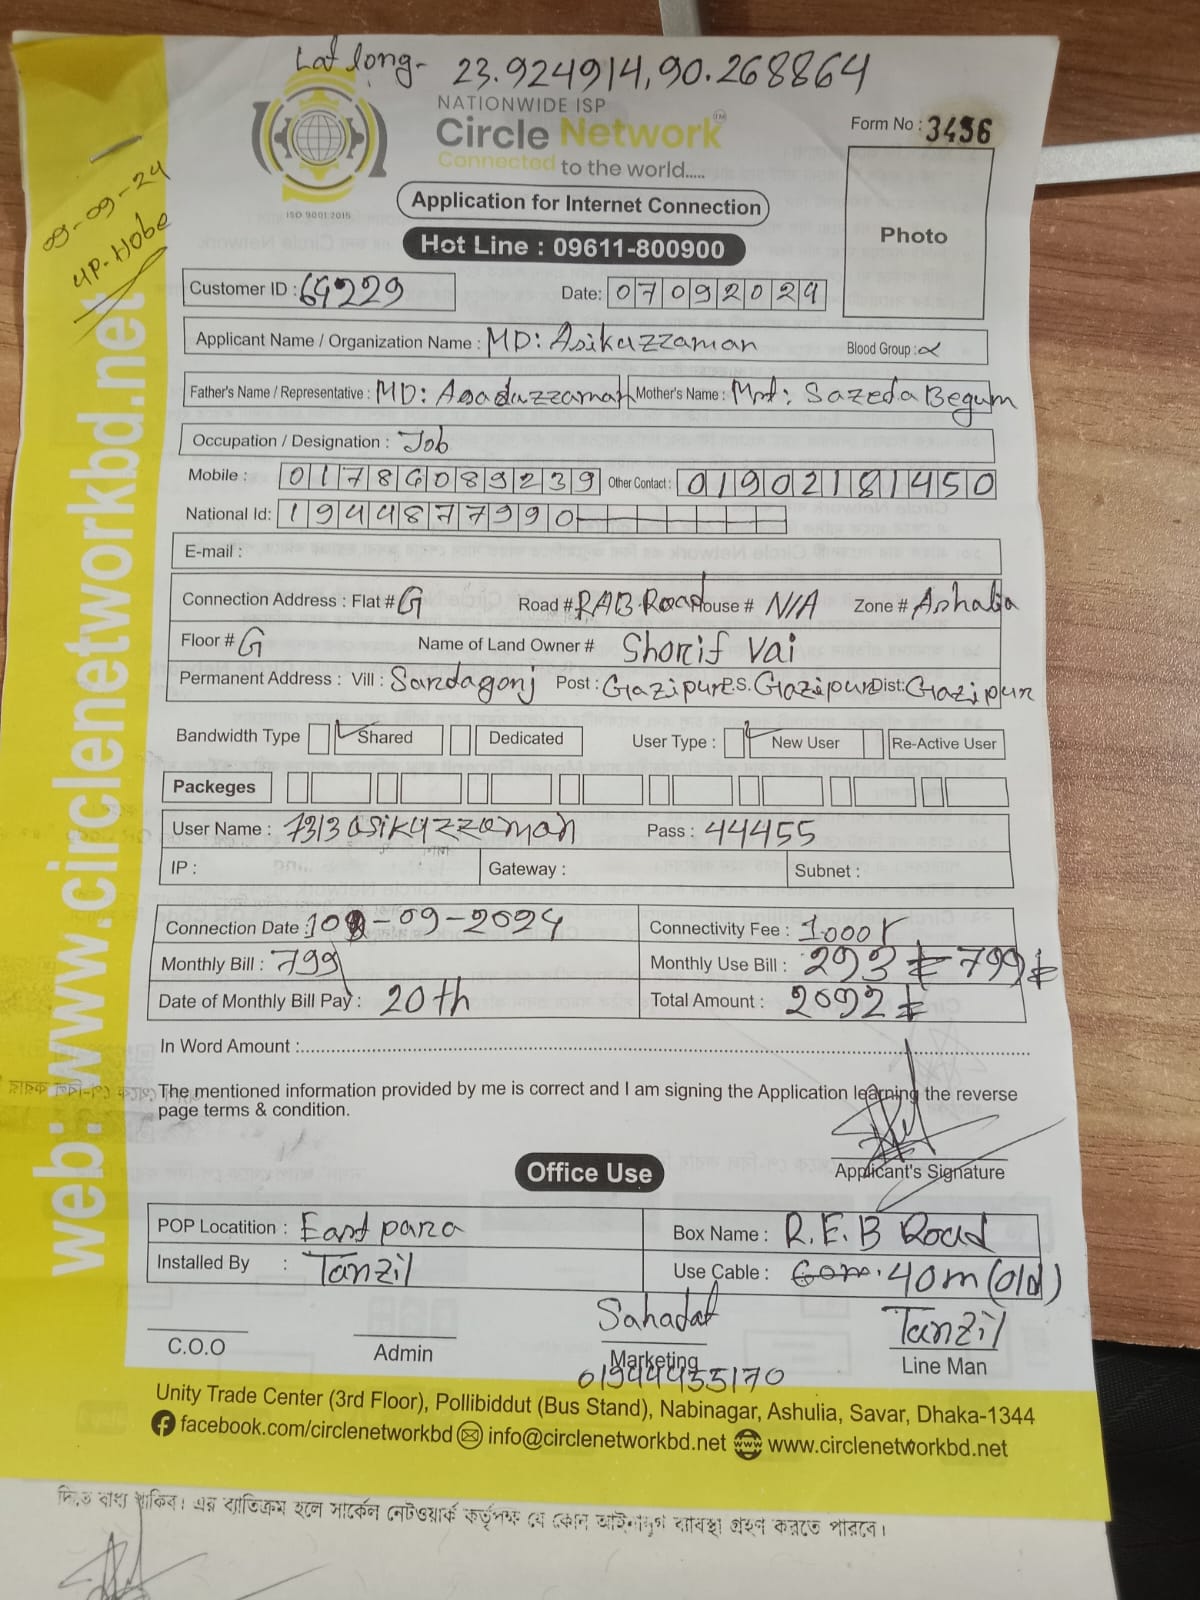 Lat long- 23.924914,90.268864
NATIONWIDE ISP
Circle Network™
Connected to the world.....
Form No : 3456
ISO 9001:2015
Application for Internet Connection
Photo
Hot Line : 09611-800900
09-09-24
UP-Hobe
web: www.circlenetworkbd.net
Customer ID : 69229 Date: 07092024
Applicant Name / Organization Name : MD: Asikuzzaman Blood Group :
Father's Name / Representative : MD: Asaduzzaman Mother's Name : Mst: Sazeda Begum
Occupation / Designation : Job
Mobile : 01786089239 Other Contact : 01902181450
National Id: 1944877990
E-mail :
Connection Address : Flat # G Road # RAB Road House # N/A Zone # Ashalia
Floor # G Name of Land Owner # Shorif Vai
Permanent Address : Vill : Sardagonj Post : Gazipur P.S. Gazipur Dist: Gazipur
Bandwidth Type Shared Dedicated User Type : New User Re-Active User
Packeges
User Name : 7313asikuzzaman Pass : 44455
IP : Gateway : Subnet :
Connection Date : 10-09-2024 Connectivity Fee : 1000
Monthly Bill : 799 Monthly Use Bill : 293 799
Date of Monthly Bill Pay : 20th Total Amount : 2092
In Word Amount :
The mentioned information provided by me is correct and I am signing the Application learning the reverse
page terms & condition.
Applicant's Signature
Office Use
POP Locatition : East para Box Name : R.E.B Road
Installed By : Tanzil Use Cable : 60m. 40m (old)
Sahadat Tanzil
C.O.O Admin Marketing Line Man
01944455170
Unity Trade Center (3rd Floor), Pollibiddut (Bus Stand), Nabinagar, Ashulia, Savar, Dhaka-1344
facebook.com/circlenetworkbd info@circlenetworkbd.net www.circlenetworkbd.net
দিতে বাধ্য থাকিব। এর ব্যতিক্রম হলে সার্কেল নেটওয়ার্ক কর্তৃপক্ষ যে কোন আইনানুগ ব্যবস্থা গ্রহণ করতে পারবে।